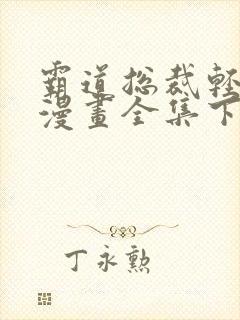 霸道总裁輕
漫畫全集下
丁永勲